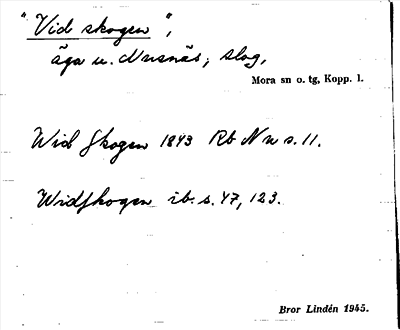 "Vid skogen",
äga u. Nusnäs, slog,
Mora sn o. tg, Kopp. l.
Wid Skogen 1843 Rb N u s. 11.
Widskogen ib. s. 47, 123.
Bror Lindén 1945.